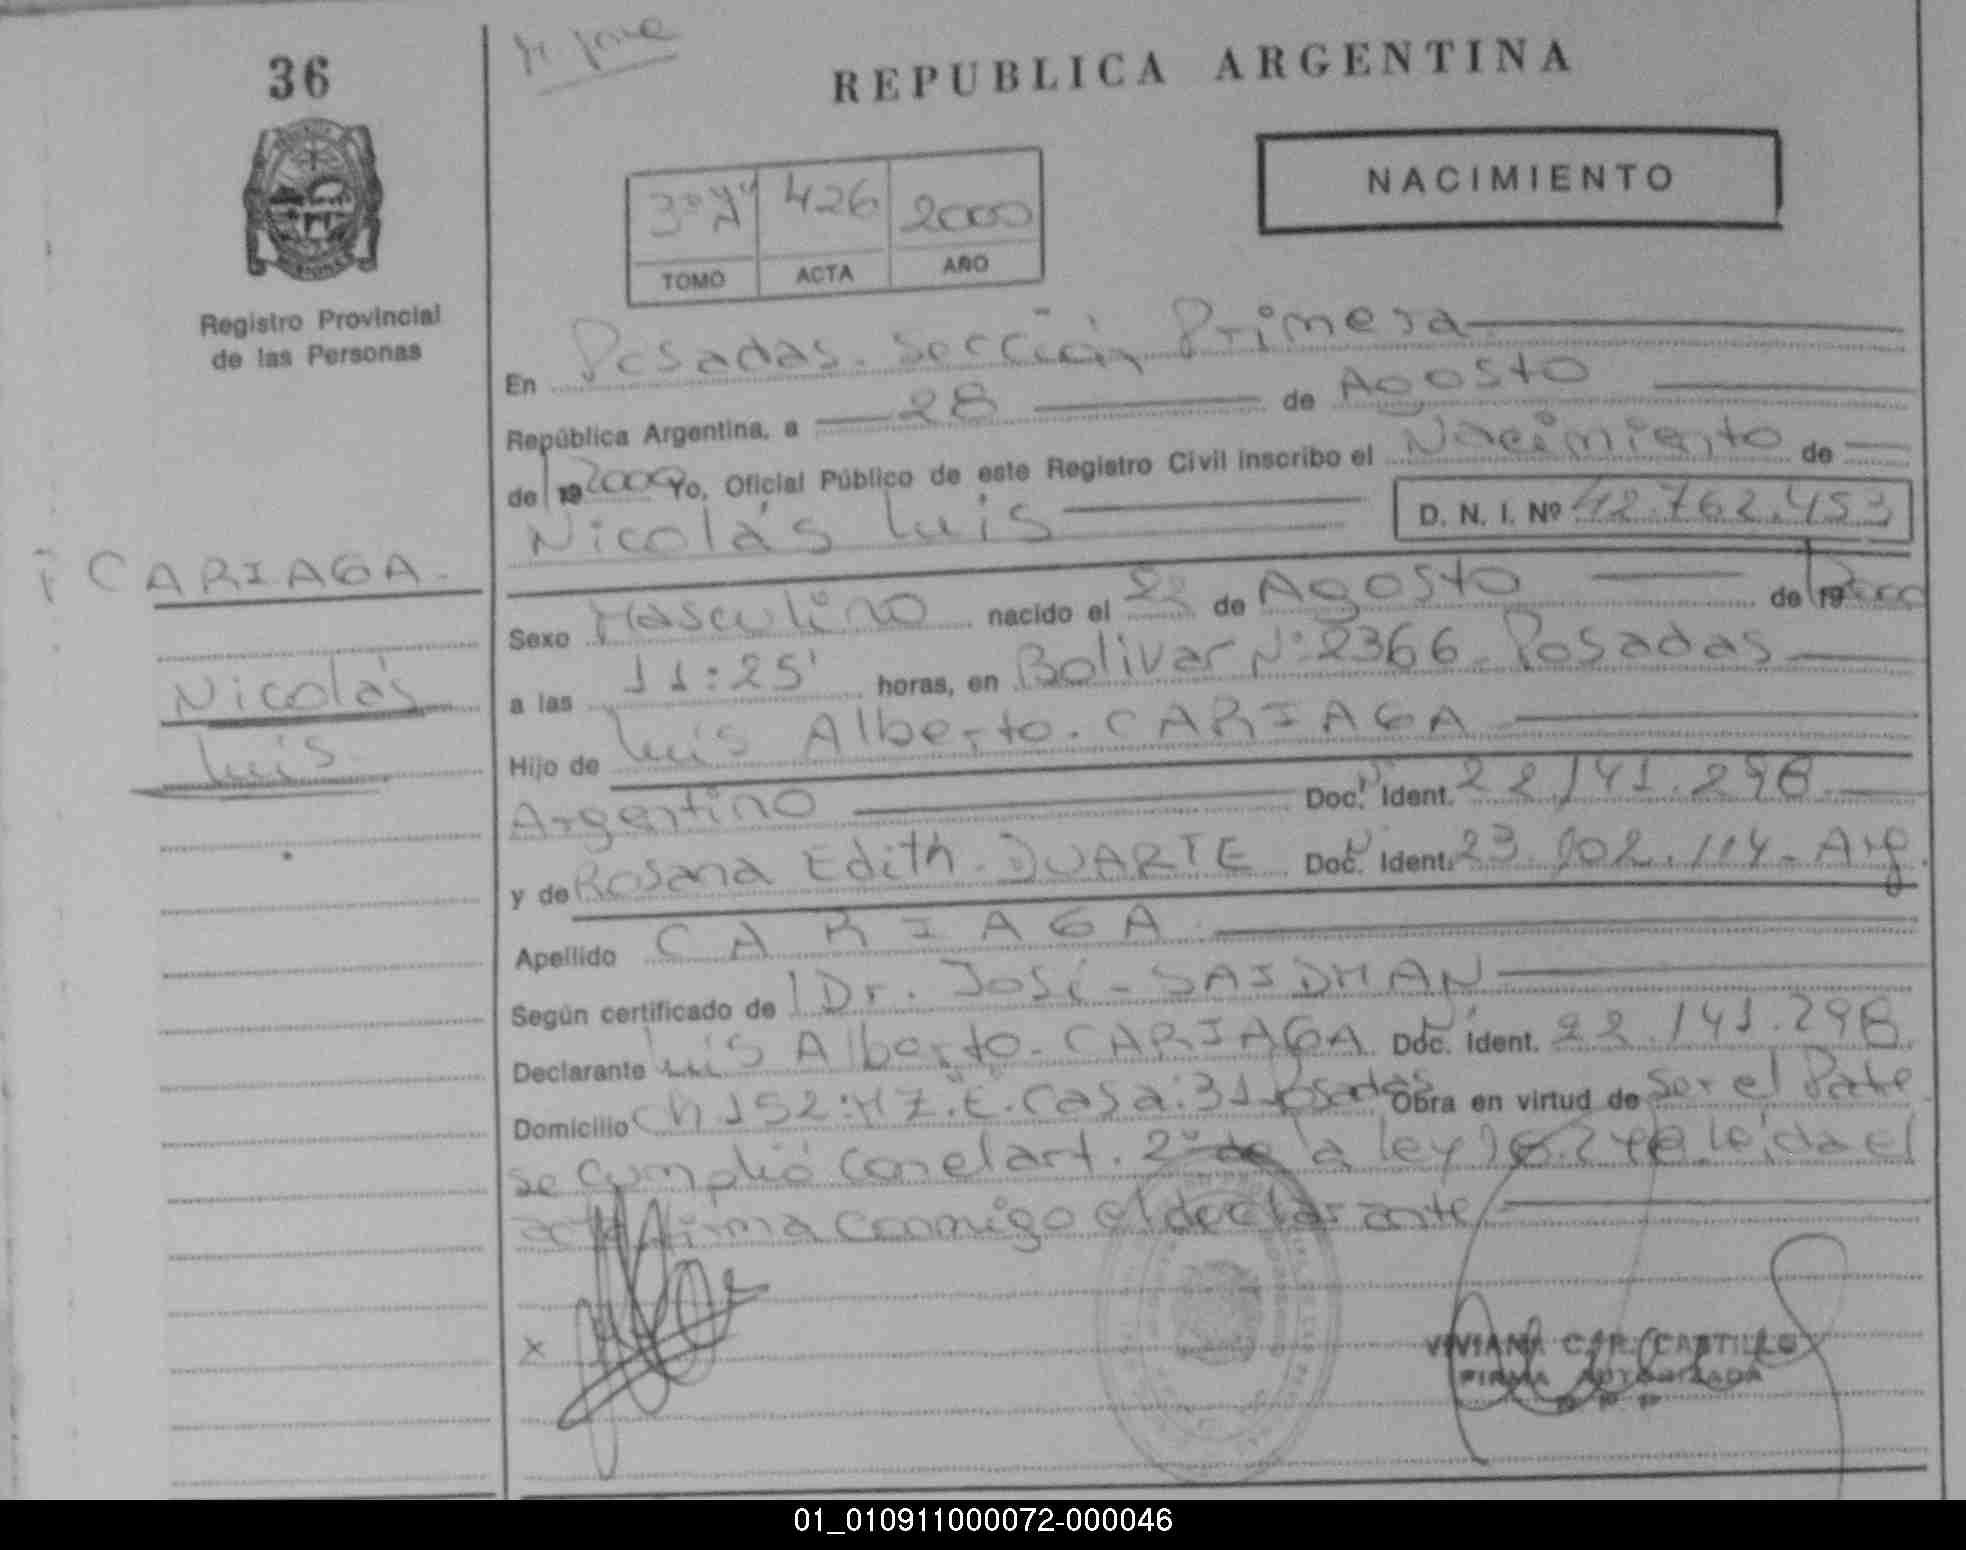 36
REPUBLICA ARGENTINA
NACIMIENTO
3º "A" 426 2000
TOMO ACTA AÑO
Registro Provincial
de las Personas
En Posadas. Sección Primera
República Argentina, a 28 de Agosto
de 19 2000 Yo, Oficial Público de este Registro Civil inscribo el Nacimiento de
Nicolás Luis D. N. I. Nº 42.762.453
CARIAGA
Nicolás
Luis
Sexo Masculino nacido el de Agosto de 19 2000
a las 11:25' horas, en Bolivar Nº 2366 - Posadas
Hijo de Luis Alberto. CARIAGA
Argentino Doc. Ident. 22.141.298
y de Rosana Edith. DUARTE Doc. Ident. 23.902.114 - Arg.
Apellido CARIAGA
Según certificado de Dr. José - SAIDMAN
Declarante Luis Alberto - CARIAGA Doc. Ident. 22.141.298
Domicilio Ch 152: MZ. E. Casa: 31 Posadas Obra en virtud de Ser el Padre
se Cumplió con el art. 2º de la ley leída el
acta firma conmigo el declarante
X
VIVIANA C. R. CASTILLO
FIRMA AUTORIZADA
01_010911000072-000046